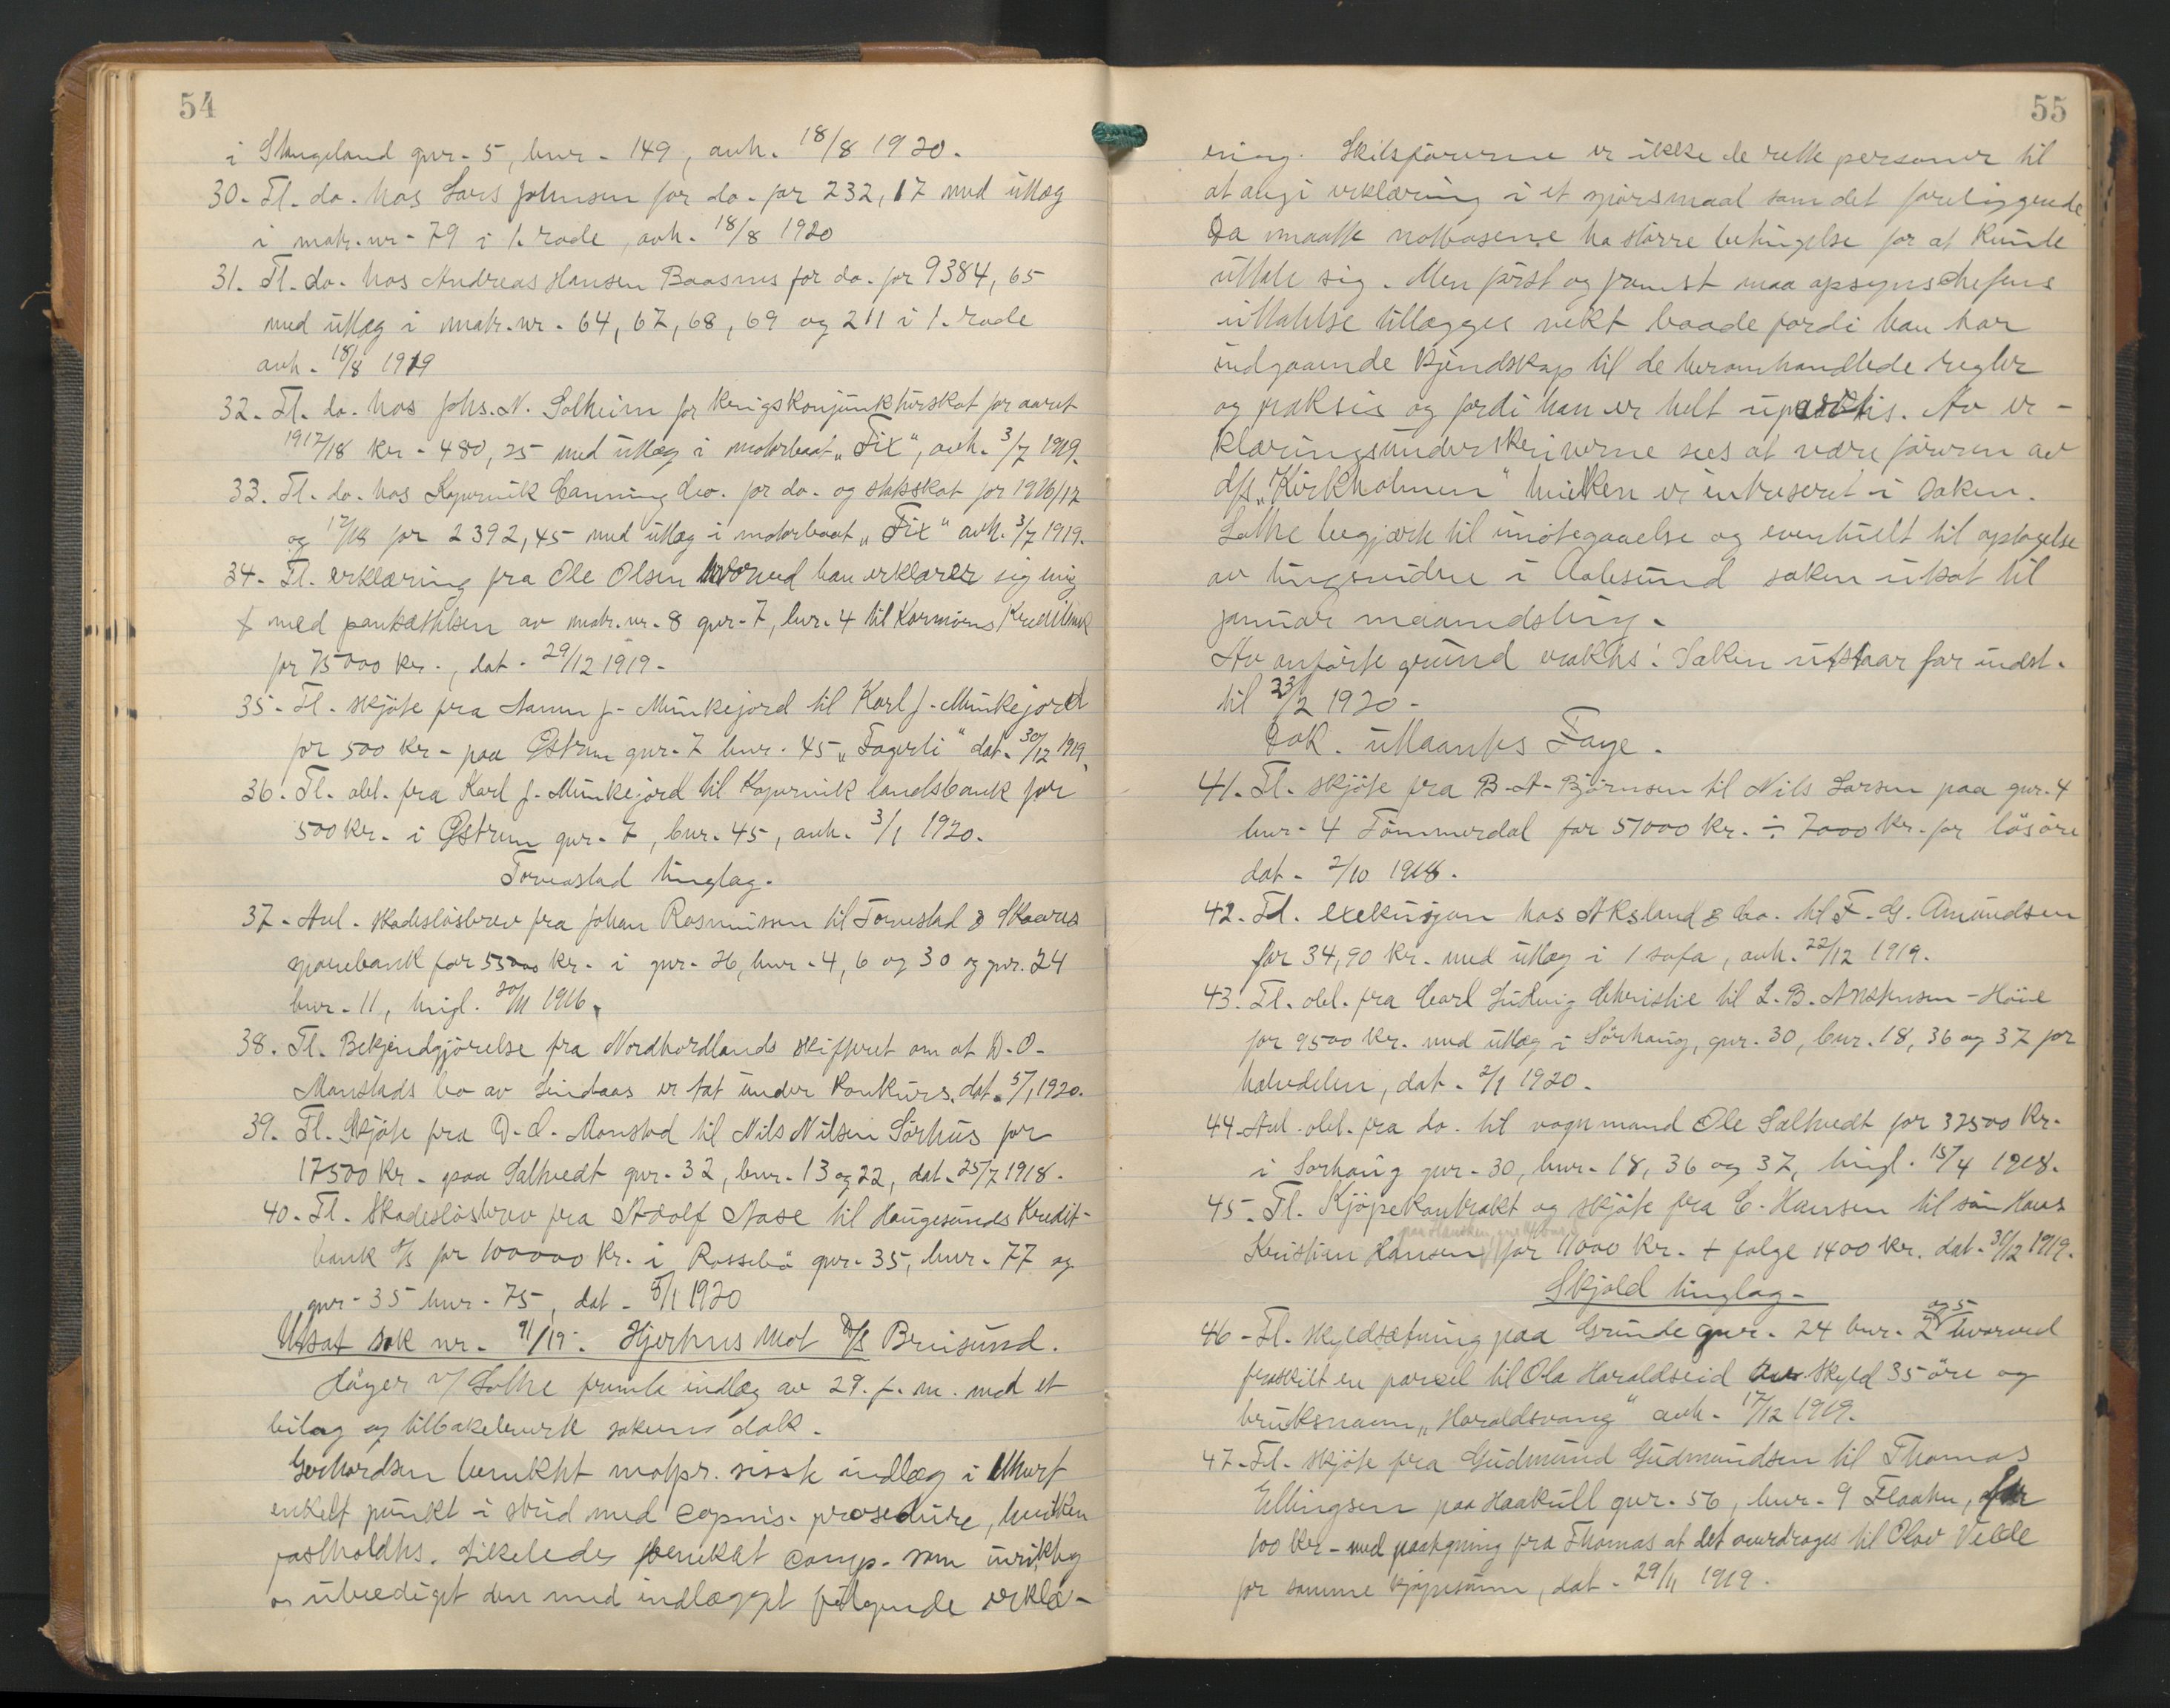 54
i Stangeland gnr. 5, bnr. 149, avh. 18/8 1920.
30. Tl. do. hos Lars Johnsen for do. for 232,17 med utlæg
i matr. nr. 79 i 1. rode, avh. 18/8 1920
31. Tl. do. hos Andreas Hansen Baasnes for do. for 9384,65
med utlæg i matr. nr. 64, 67, 68, 69 og 211 i 1. rode
avh. 18/8 1919
32. Tl. do. hos Johs. N. Solheim for krigskonjunkturskat for aaret
1917/18 kr. 480,25 med utlæg i motorbaat „Fix“, avh. 3/7 1919.
33. Tl. do. hos Kopervik Canning Co. for do. og statsskat for 1916/17
og 17/18 for 2392,45 med utlæg i motorbaat „Fix“ avh. 3/7 1919.
34. Tl. erklæring fra Ole Olsen hvorved han erklærer sig enig
med pantsættelsen av matr. nr. 8 gnr. 7, bnr. 4 til Karmøens Kreditbank
for 75000 kr., dat. 29/12 1919.
35. Tl. skjøte fra J. Munkejord til Karl J. Munkejord
for 500 kr. paa Østrem gnr. 7 bnr. 45 „Fagerli“ dat. 30/12 1919.
36. Tl. obl. fra Karl J. Munkejord til Kopervik landsbank for
500 kr. i Østrem gnr. 7, bnr. 45, avh. 3/1 1920.
Torvastad tinglag.
37. Avl. skadesløsbrev fra Johan Rasmussen til Torvestad & Skaares
sparebank for 55000 kr. i gnr. 26, bnr. 4, 6 og 30 og gnr. 24
bnr. 11, tingl. 20/11 1916.
38. Tl. Bekjendtgjørelse fra Nordhordlands skifteret om at D. O.
Monstads bo av Lindaas er tat under konkurs, dat. 5/1 1920.
39. Tl. Skjøte fra D. O. Monstad til Nils Nilsen Sørhus for
17500 kr. paa Saltvedt gnr. 32, bnr. 13 og 22, dat. 25/7 1918.
40. Tl. Skadesløsbrev fra Adolf Aase til Haugesunds Kredit-
bank A/S for 100000 kr. i Rossebø gnr. 35, bnr. 77 og
gnr. 35 bnr. 75, dat. 5/1 1920
Utsat sak nr. 91/19. Hjertnes mot D/S Brusund.
Høyer v/ Lothe fremla indlæg av 29. f. m. med et
bilag og tilbakeleverte sakens dok.
Gerhardsen benektet motpr. siste indlæg i ethvert
enkelt punkt i strid med egnis prosedure, hvilken
fastholdtes. Likeledes benektet comp. som uriktig
og ubeediget den med indlægget følgende erklæ-
55
ring. Skibsførerne er ikke de rette personer til
at avgi erklæring i et spørsmaal som det foreliggende
Da maatte notbasene ha større betingelse for at kunde
uttale sig. Men først og fremst maa opsynschefens
uttalelse tillægges vekt baade fordi han har
indgaaende kjendskap til de heromhandlede regler
og praksis og fordi han er helt upartisk. Av er-
klæringsunderskriverne sees at være føreren av
d/s „Kirkholmen“ hvilken er interesert i saken.
Lothe begjærte til imøtegaaelse og eventuelt til optagelse
av tingsvidne i Aalesund saken utsat til
januar maanedsting.
Av anførte grund vaktes: Saken utstaar for indst.
til 23/2 1920.
Dok. utlaantes Faye.
41. Tl. skjøte fra B. A. Bjørnsen til Nils Larsen paa gnr. 4
bnr. 4 Tømmerdal for 51000 kr. ÷ 7000 kr. for løsøre
dat. 2/10 1918.
42. Tl. exekusjon hos Aksland & Co. til F. G. Amundsen
for 34,90 kr. med utlæg i 1 sofa, avh. 22/12 1919.
43. Tl. obl. fra Carl Ludvig Christie til L. B. Høie
for 9500 kr. med utlæg i Sørhaug, gnr. 30, bnr. 18, 36 og 37 for
halvdelen, dat. 2/1 1920.
44. Avl. obl. fra do. til vognmand Ole Saltvedt for 32500 kr.
i Sørhaug gnr. 30, bnr. 18, 36 og 37, tingl. 15/4 1918.
45. Tl. Kjøpekontrakt og skjøte fra C. Hansen til søn Hans
Kristian Hansen for 11000 kr. + følge 1400 kr. dat. 31/12 1919.
Skjold tinglag.
46. Tl. skyldsætning paa Grinde gnr. 24 bnr. 2 og 5 hvorved
fraskilt en parcel til Ola Haraldseid skyld 35 øre og
bruksnavn „Haraldsvang“ avh. 17/12 1919.
47. Tl. skjøte fra Gudmund Gudmundsen til Thomas
Ellingsen paa Haakull gnr. 56, bnr. 9 Flaaten, for
100 kr. med paategning fra Thomas at det overdrages til Olav Velde
for samme kjøpesum, dat. 29/11 1919.